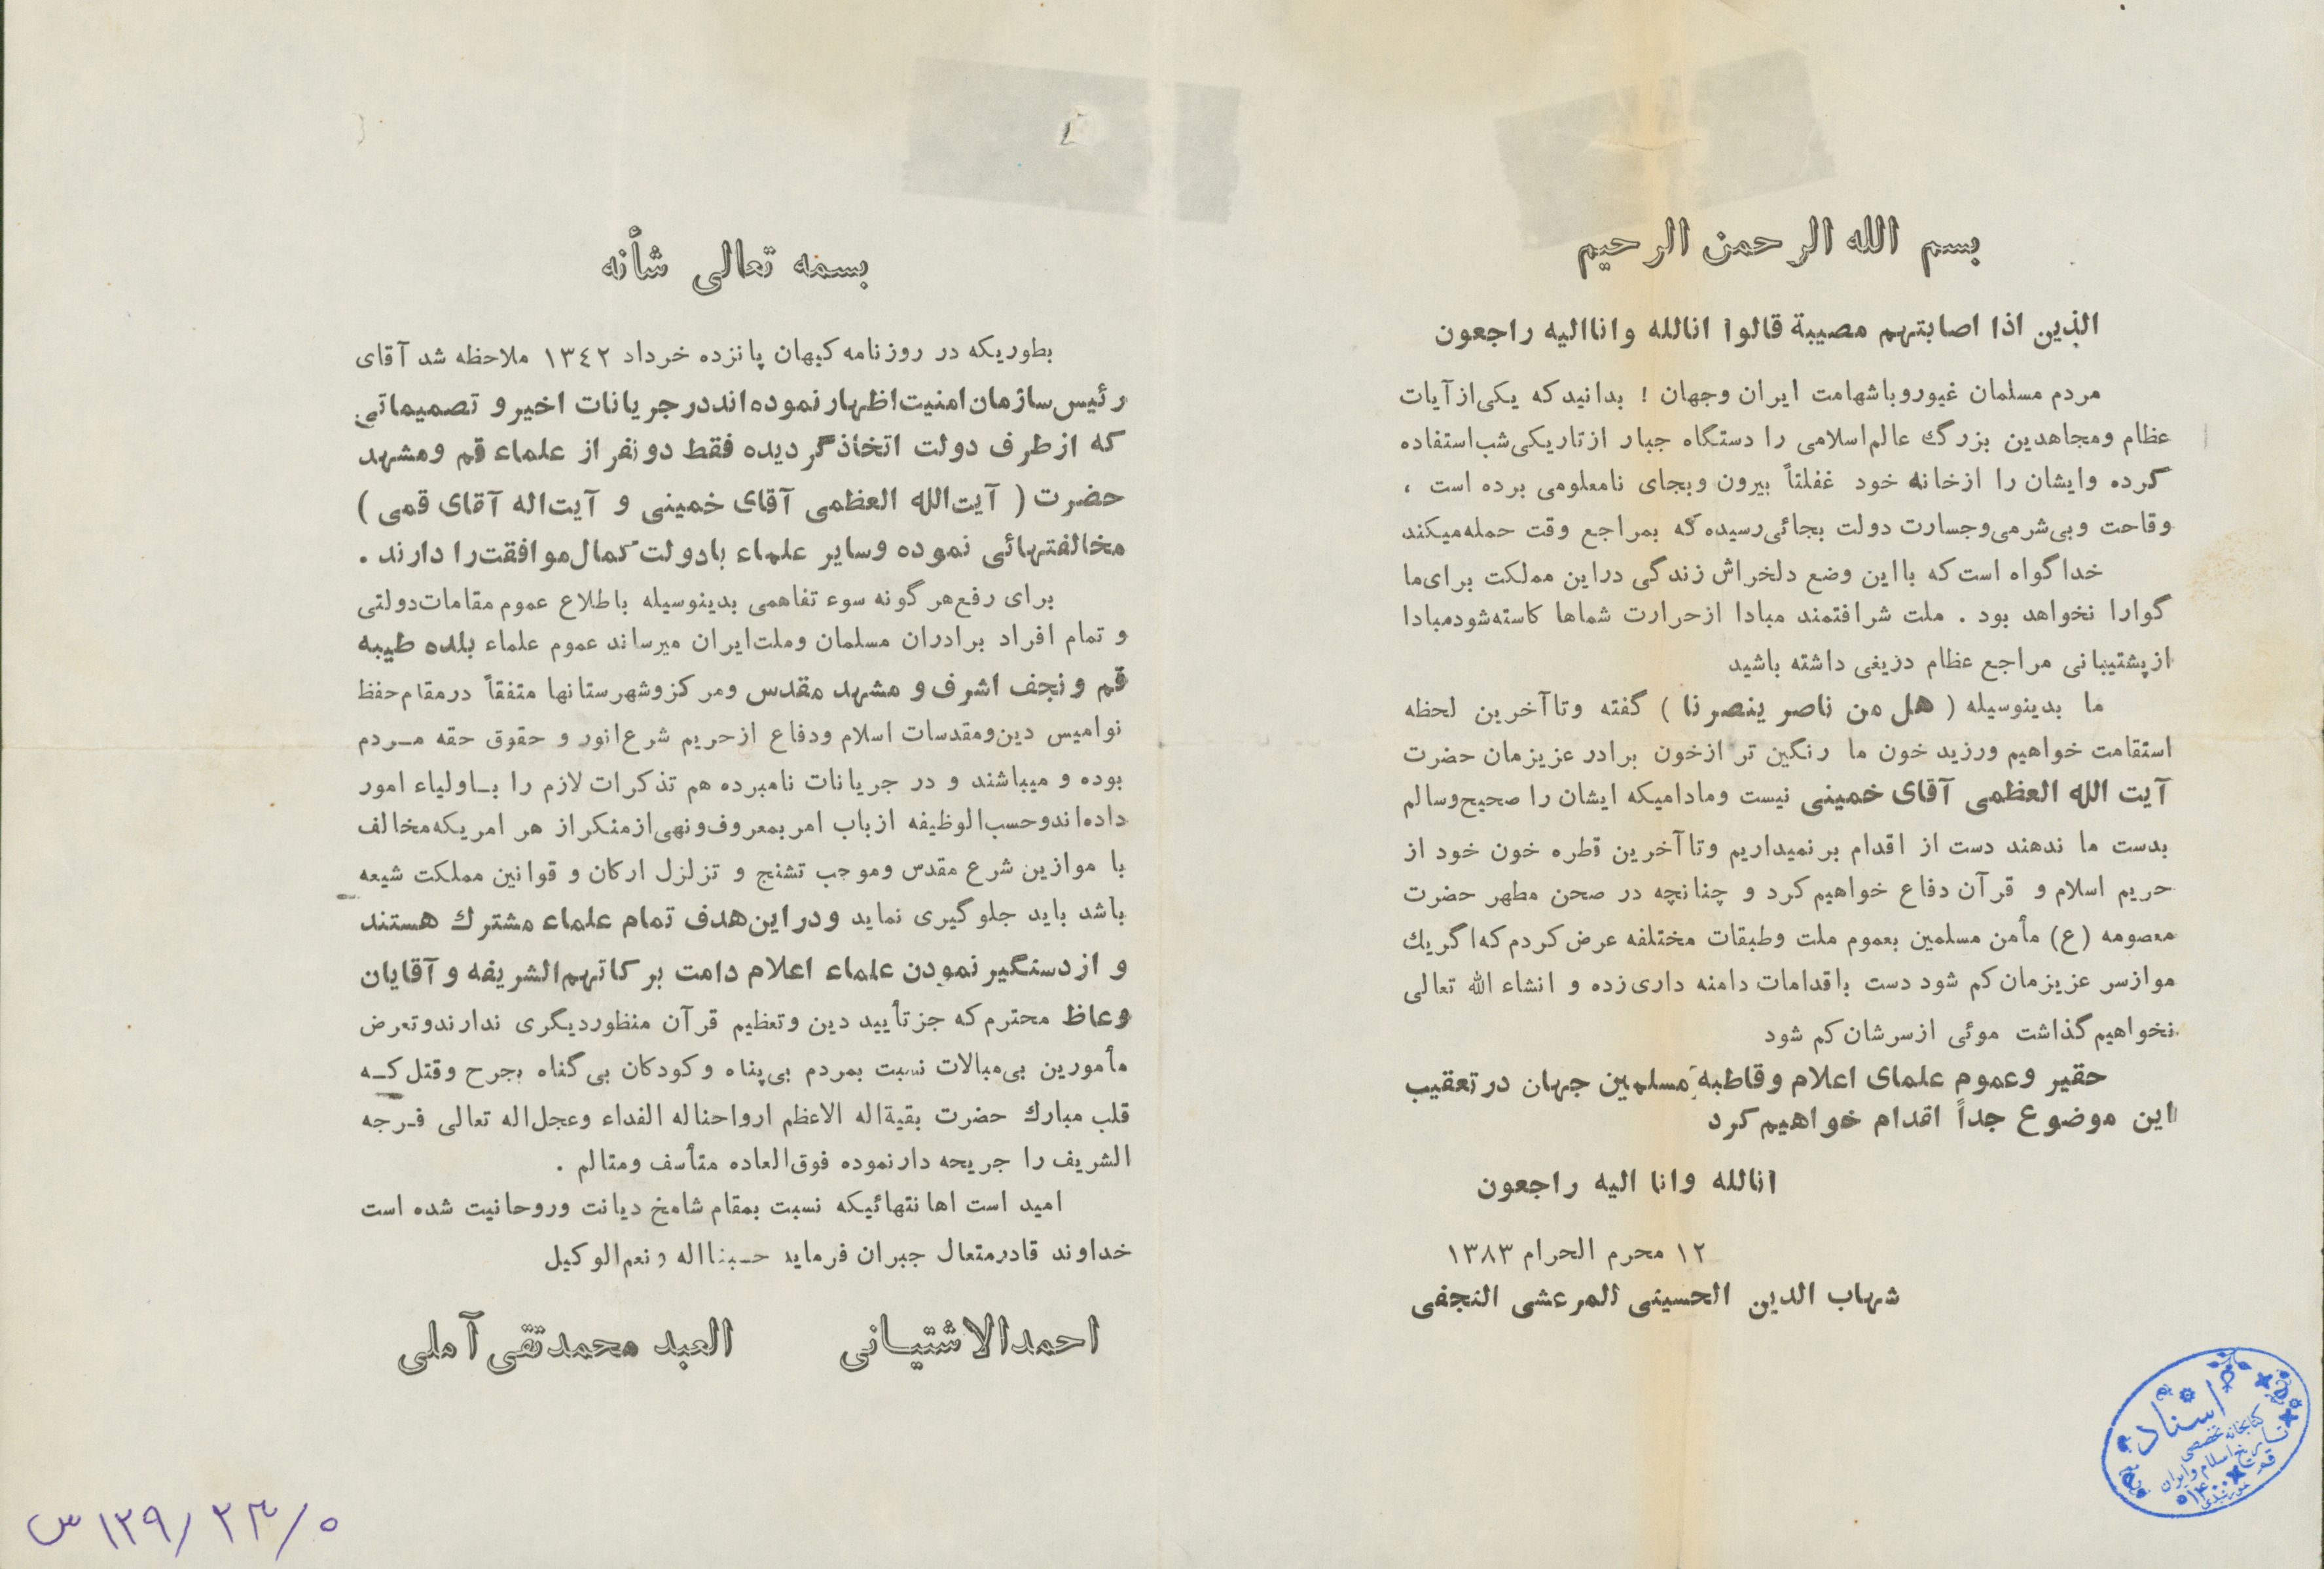 بسم الله الرحمن الرحيم
الذين اذا اصابتهم مصيبة قالوا انالله واناالیه راجعون
مردم مسلمان غیوروباشهامت ایران وجهان ! بدانیدکه یکی‌ازآیات
عظام ومجاهدین بزرگ عالم‌اسلامی را دستگاه جبار ازتاریکی‌شب‌استفاده
کرده وایشان را ازخانه خود غفلتاً بیرون وبجای نامعلومی برده است ،
وقاحت وبی‌شرمی‌وجسارت دولت بجائی‌رسیده‌که بمراجع وقت حمله‌میکند
خداگواه است‌که بااین وضع دلخراش زندگی دراین مملکت برای‌ما
گوارا نخواهد بود . ملت شرافتمند مبادا ازحرارت شماها کاسته‌شودمبادا
ازپشتیبانی مراجع عظام دریغی داشته باشید
ما بدینوسیله ( هل من ناصر ینصرنا ) گفته وتاآخرین لحظه
استقامت خواهیم ورزید خون ما رنگین تر ازخون برادر عزیزمان حضرت
آیت الله العظمی آقای خمینی نیست ومادامیکه ایشان را صحیح‌وسالم
بدست ما ندهند دست از اقدام برنمیداریم وتاآخرین قطره خون خود از
حریم اسلام و قرآن دفاع خواهیم‌کرد و چنانچه در صحن مطهر حضرت
معصومه (ع) مأمن مسلمین بعموم ملت وطبقات مختلفه عرض‌کردم‌که‌اگریك
موازسر عزیزمان‌کم شود دست باقدامات دامنه داری‌زده و انشاء الله تعالی
نخواهیم‌گذاشت موئی ازسرشان‌کم شود
حقیر وعموم علمای اعلام وقاطبه مسلمین جهان درتعقیب
این موضوع جداً اقدام خواهیم‌کرد
انالله وانا الیه راجعون
۱۲ محرم الحرام ۱۳۸۳
شهاب الدین الحسینی المرعشی النجفی
بسمه تعالی شأنه
بطوریکه در روزنامه‌کیهان پانزده خرداد ۱۳٤۲ ملاحظه شد آقای
رئیس‌سازمان‌امنیت‌اظهارنموده‌انددرجریانات اخیرو تصمیماتی
که ازطرف دولت اتخاذگردیده فقط دونفراز علماء قم ومشهد
حضرت ( آیت‌الله العظمی آقای خمینی و آیت‌اله آقای قمی )
مخالفتهائی نموده وسایر علماء بادولت‌کمال‌موافقت‌را دارند .
برای رفع‌هرگونه سوء تفاهمی بدینوسیله باطلاع عموم مقامات‌دولتی
و تمام افراد برادران مسلمان وملت‌ایران میرساند عموم علماء بلده طیبه
قم ونجف اشرف و مشهد مقدس ومرکزوشهرستانها متفقاً درمقام‌حفظ
نوامیس دین‌ومقدسات اسلام ودفاع ازحریم شرع‌انور و حقوق حقه مـردم
بوده و میباشند و در جریانات نامبرده هم تذکرات لازم را بـاولیاء امور
داده‌اندوحسب‌الوظیفه ازباب امربمعروف‌ونهی‌ازمنکراز هر امریکه‌مخالف
با موازین شرع مقدس وموجب تشنج و تزلزل ارکان و قوانین مملکت شیعه
باشد باید جلوگیری نماید ودراین‌هدف تمام علماء مشترك هستند
و ازدستگیرنمودن علماء اعلام دامت برکاتهم‌الشریفه وآقایان
وعاظ محترم‌که جزتأیید دین وتعظیم قرآن منظوردیگری ندارندوتعرض
مأمورین بی‌مبالات نسبت بمردم بی‌پناه وکودکان بی‌گناه بجرح وقتل‌کـه
قلب مبارك حضرت بقیةاله الاعظم ارواحناله الفداء وعجل‌اله تعالی فـرجه
الشریف را جریحه دارنموده فوق‌العاده متأسف ومتالم .
امید است اهانتهائیکه نسبت بمقام شامخ دیانت وروحانیت شده است
خداوند قادرمتعال جبران فرماید حسبنااله ونعم‌الوکیل
احمدالاشتیـانی
العبد محمدتقی آملی
اسناد
کتابخانه تخصصی
تاریخ اسلام وایران
قم
۱۲۹/۲۳/۵ س